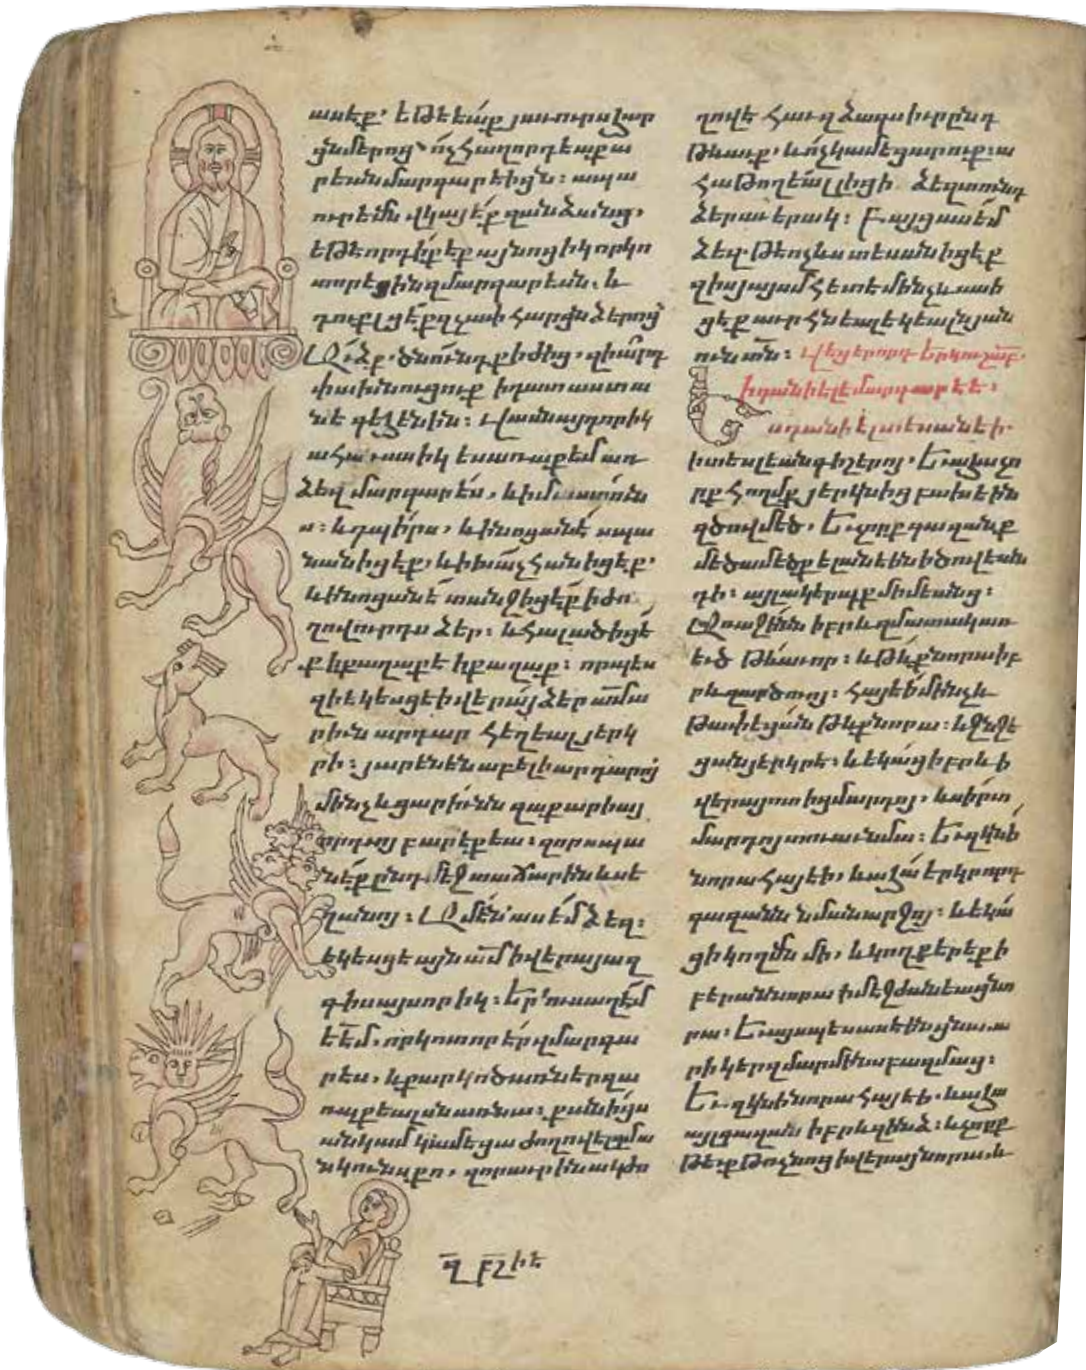 ասեք. եթե էաք յաւուրս հար
ցն մերոց՝ ոչ հաղորդէաք ա
րեանն մարգարէիցն: ապա
ուրեմն վկայէք զանձանց,
եթե որդիք էք այնոցիկ որ կո
տորեցին զմարգարէսն. և
դուք լցէք զչափ հարցն ձերոց
Աւձք. ծնունդք իժից, զիարդ
փախնուցուք ի դատաստա
նէ գեհենին: Վասն այդորիկ
ահաւասիկ ես առաքեմ առ
ձեզ մարգարէս, և իմաստուն
ս: և դպիրս, և ի նոցանէ սպա
նանիցէք, և ի խաչ հանիցէք.
և ի նոցանէ տանջիցէք ի ժո
ղովուրդս ձեր: և հալածիցէ
ք ի քաղաքէ ի քաղաք: որպէս
զի եկեսցե ի վերայ ձեր ամ ա
րիւն արդար հեղեալ յերկ
րի: յարենէն աբելի արդարոյ
մինչև ցարիւնն զաքարիայ
որդւոյ բարեքեա: զոր սպա
նէք ընդ մէջ տաճարին և սե
ղանոյ: Ամէն ասեմ ձեզ:
եկեսցե այն ամ ի վերայ ազ
գիս այսորիկ: Երուսաղէմ
եէմ, որ կոտորէիր զմարգա
րէս, և քարկոծ առնէիր զա
ռաքեալսն առ նա: քանիցս
անկամ կամեցա ժողովել զմա
նկունս քո, զոր աւրինակ ժո
ղովե հաւ զձագս իւր ընդ
թևաւք. և ոչ կամեցարուք: ա
հա թողեալ լիցի ձեզ տունդ
ձեր աւերակ: Բայց ասեմ
ձեզ. թե ոչ ևս տեսանիցեք
զիս յայսմ հետե մինչև ասի
ցեք աւրհնեալ եկեալ յան
ուն տն: Վեցերորդ Երկուշաբ.
ի դանիելէ մարգարէէ:
Ես դանիէլ տեսանեի.
ի տեսլեան գիշերոյ. Եւ ահա չո
րք հողմք յերկնից բախէին
զծով մեծ, Եւ չորք գազանք
մեծամեծք ելանէին ի ծովէ ան
դի: այլակերպք միմեանց:
Առաջինն իբրև զմատակ առ
եւծ թևաւոր: և թևք նորա իբ
րև զարծուոյ: հայեի մինչև
թափեցան թևք նորա: և ջնջե
ցաւ յերկրե: և եկաց իբրև ի
վերայ ոտից մարդոյ, և սիրտ
մարդոյ տուաւ նմա: Եւ զկնի
նորա հայեի, և ահա երկրորդ
գազանն նման արջոյ: և եկա
ց ի կողմն մի, և կողք երեք ի
բերան նորա ի մէջ ժանեաց նո
րա: Եւ այսպես ասեին ցնա. ա
րի կեր զմարմինս բազմաց:
Եւ զկնի նորա հայեի, և ահա
այլ գազան իբրև զինձ: և չորք
թեւք թռչնոց ի վերայ նորա. և